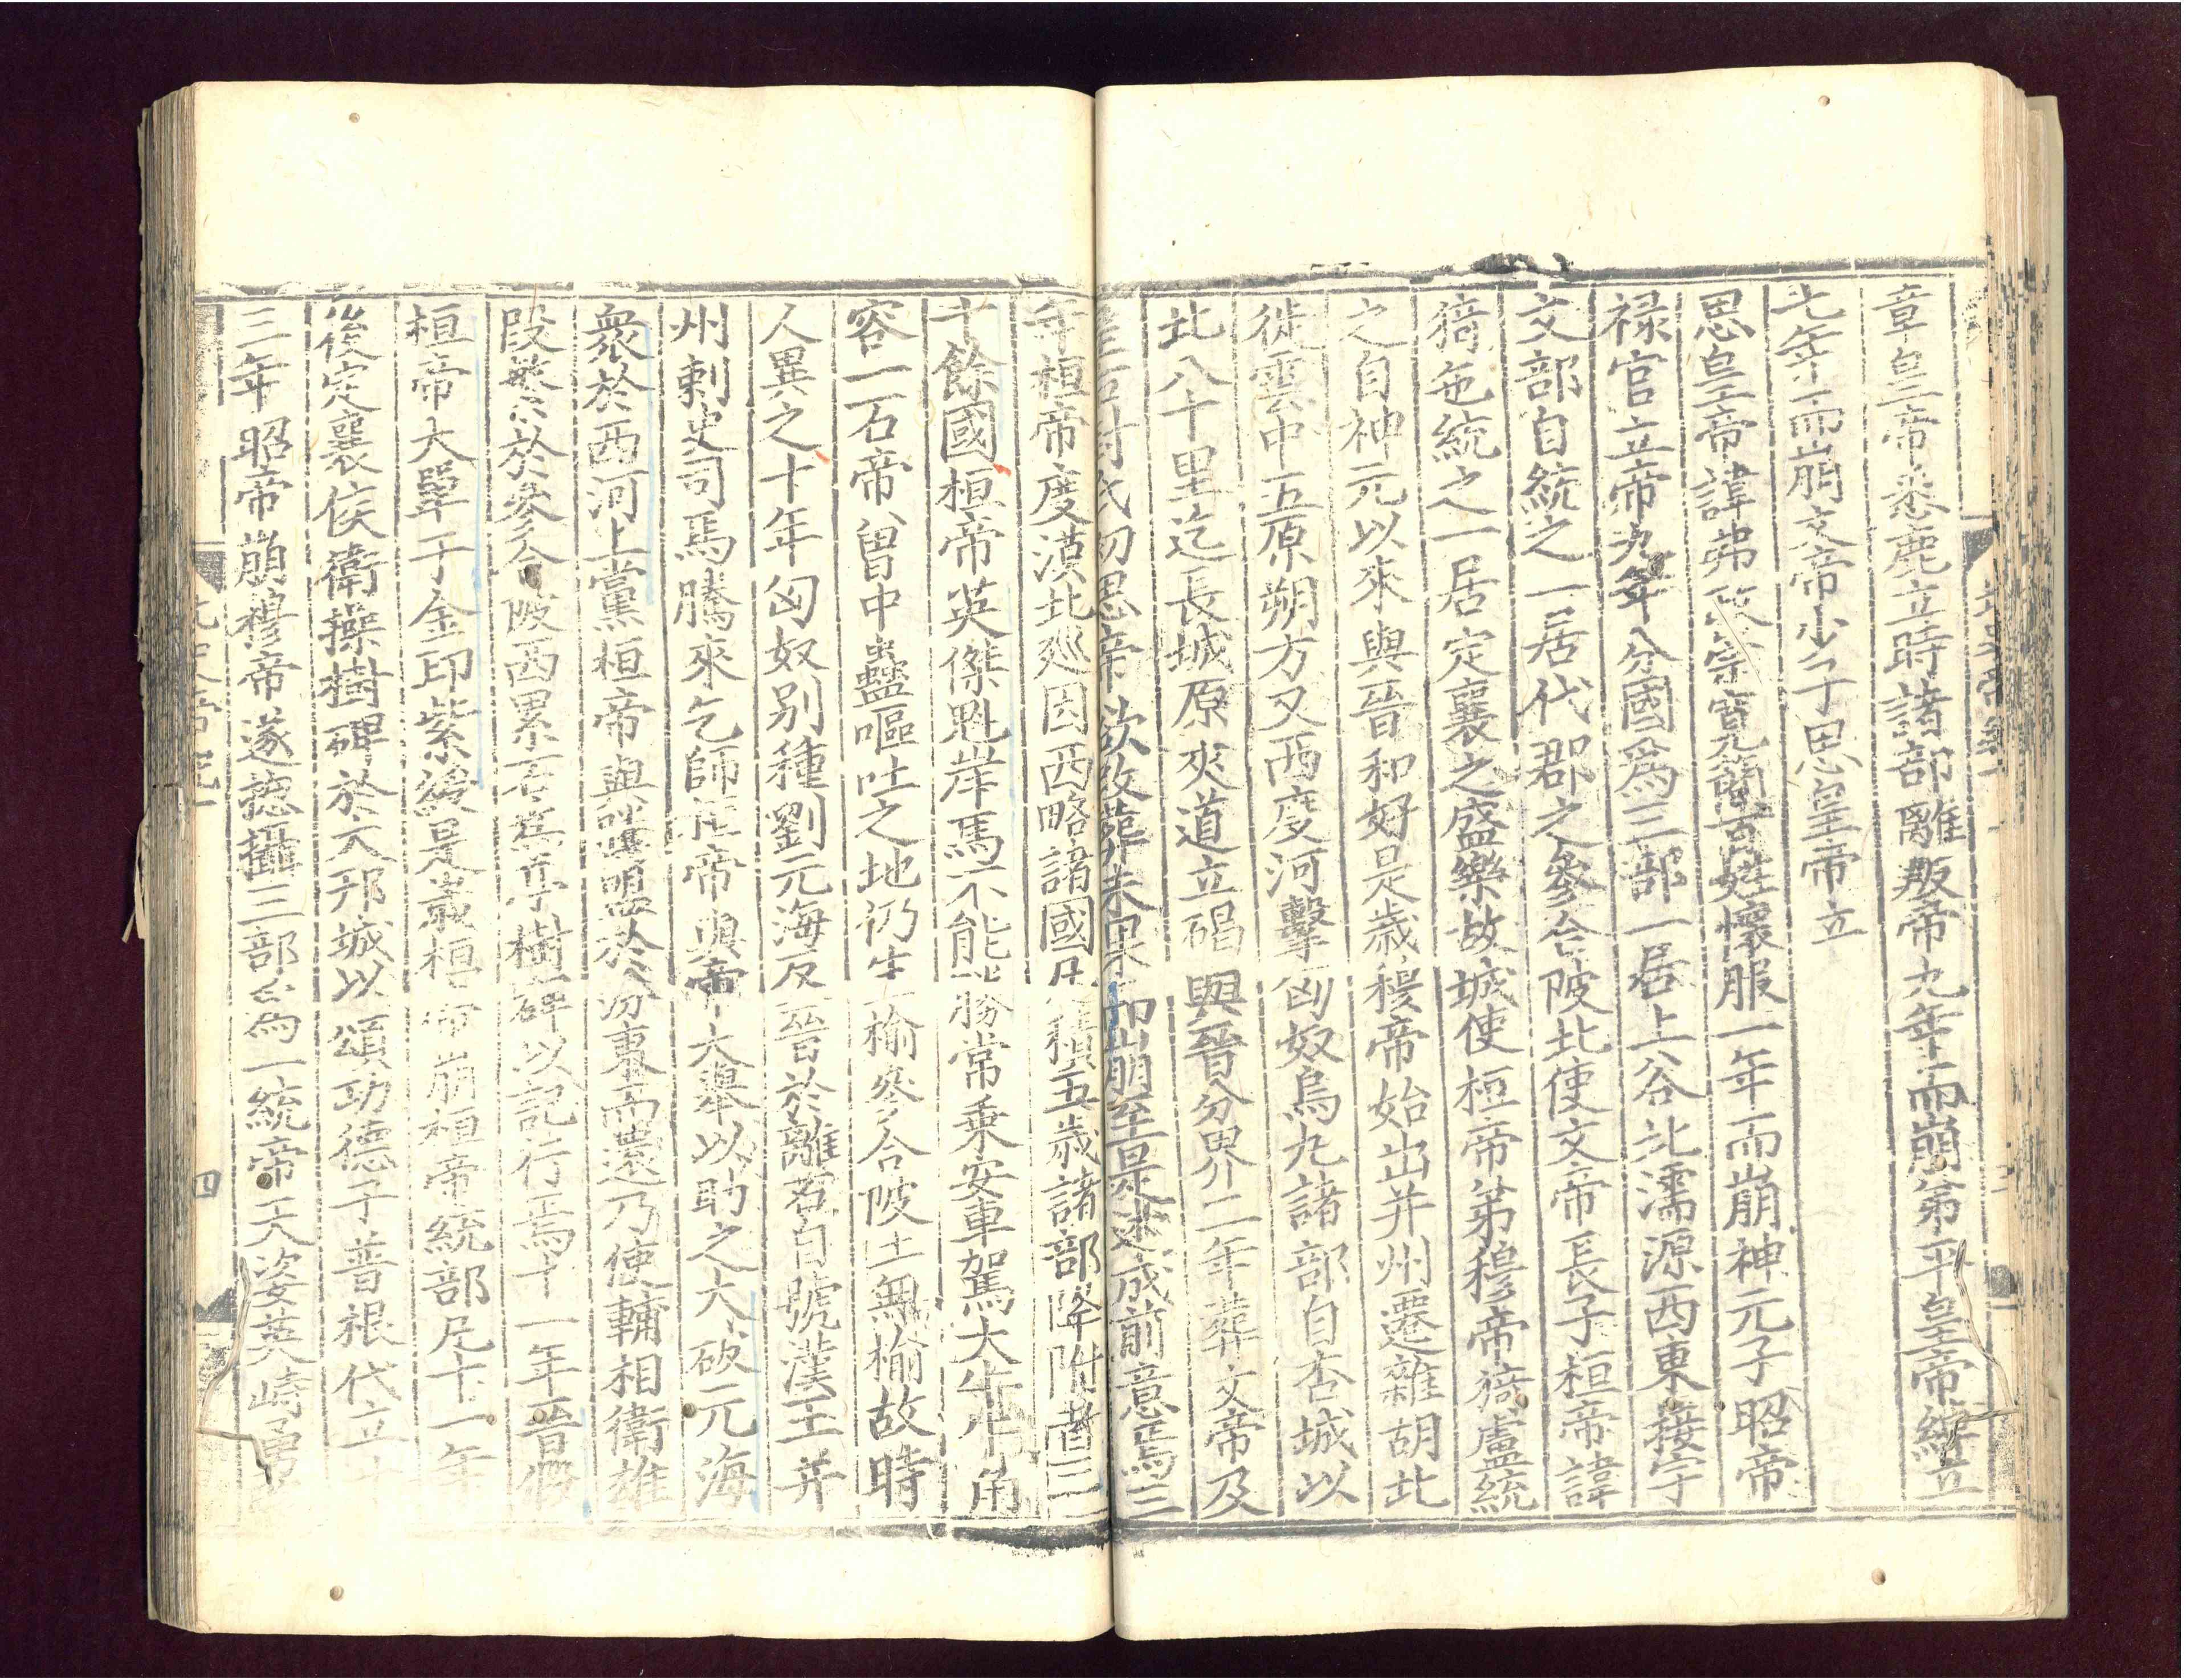 章皇帝悉鹿立時諸部離叛帝九年而崩弟平皇帝綽立
七年而崩文帝少子思皇帝立
思皇帝諱弗政崇寬簡百姓懷服一年而崩神元子昭帝
禄官立帝九年分國爲三部一居上谷北濡源西東接宇
文部自統之一居代郡之參合陂北使文帝長子桓帝諱
猗㐌統之一居定襄之盛樂故城使桓帝弟穆帝猗盧統
之自神元以來與晉和好是歳穆帝始出并州遷雜胡北
徙雲中五原朔方又西度河擊匈奴烏丸諸部自杏城以
北八十里迄長城原夾道立碣與晉分界二年葬文帝及
皇后封氏初思帝欲改葬未果而崩至是述成前意焉三
年桓帝度漠北廵因西略諸國凡積五歳諸部降附者三
十餘國桓帝英傑魁岸馬不能勝常乗安車駕大牛牛角
容一石帝曽中蠱嘔吐之地仍生榆參合陂土無榆故時
人異之十年匈奴别種劉元海反晉於離石自號漢王并
州刺史司馬騰來乞師桓帝與帝大舉以助之大破元海
衆於西河上黨桓帝與騰盟於汾東而還乃使輔相衛雄
段繁於參合陂西累石爲亭樹碑以記行焉十一年晉假
桓帝大單于金印紫綬是歳桓帝崩桓帝統部凡十一年
後定襄侯衛操樹碑於大邗城以頌功德子普根代立十
三年昭帝崩穆帝遂摠攝三部爲一統帝天姿英峙勇
魏帝紀一
四